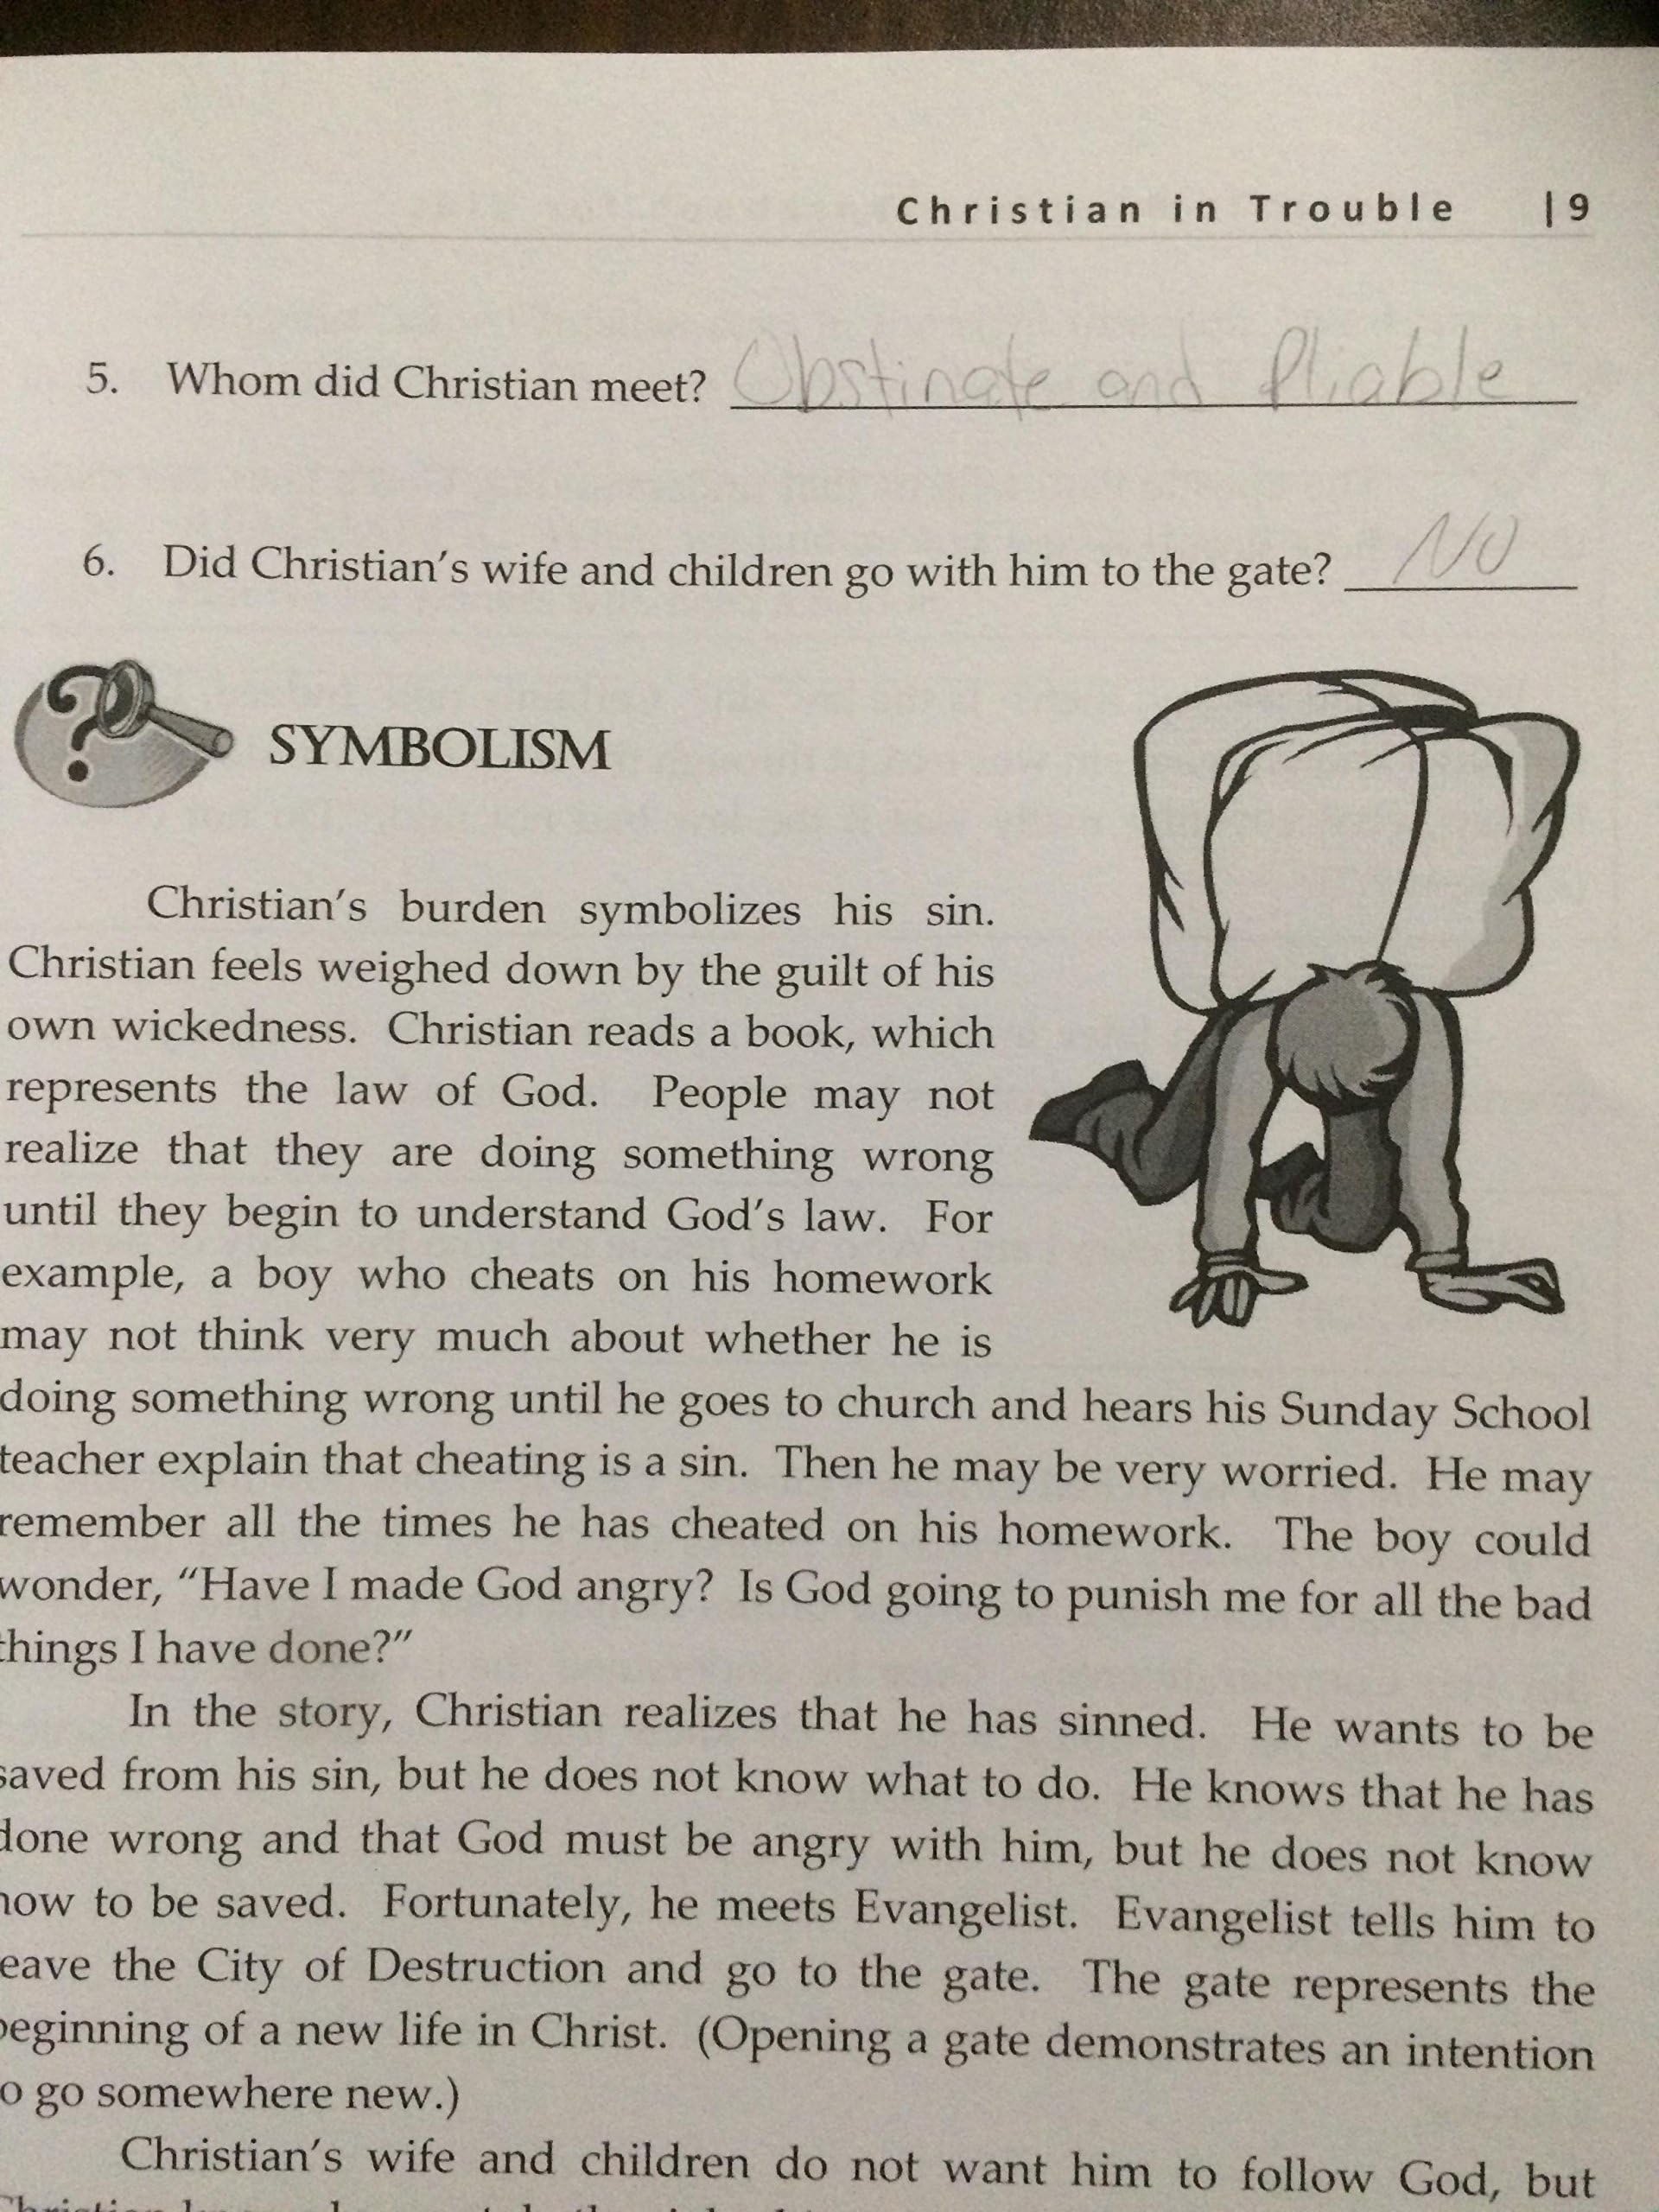 Christian in Trouble | 9
5. Whom did Christian meet? Obstinate and Pliable
6. Did Christian's wife and children go with him to the gate? NO
?
SYMBOLISM
Christian's burden symbolizes his sin.
Christian feels weighed down by the guilt of his
own wickedness. Christian reads a book, which
represents the law of God. People may not
realize that they are doing something wrong
until they begin to understand God's law. For
example, a boy who cheats on his homework
may not think very much about whether he is
doing something wrong until he goes to church and hears his Sunday School
teacher explain that cheating is a sin. Then he may be very worried. He may
remember all the times he has cheated on his homework. The boy could
wonder, "Have I made God angry? Is God going to punish me for all the bad
things I have done?"
In the story, Christian realizes that he has sinned. He wants to be
saved from his sin, but he does not know what to do. He knows that he has
done wrong and that God must be angry with him, but he does not know
how to be saved. Fortunately, he meets Evangelist. Evangelist tells him to
eave the City of Destruction and go to the gate. The gate represents the
beginning of a new life in Christ. (Opening a gate demonstrates an intention
o go somewhere new.)
Christian's wife and children do not want him to follow God, but